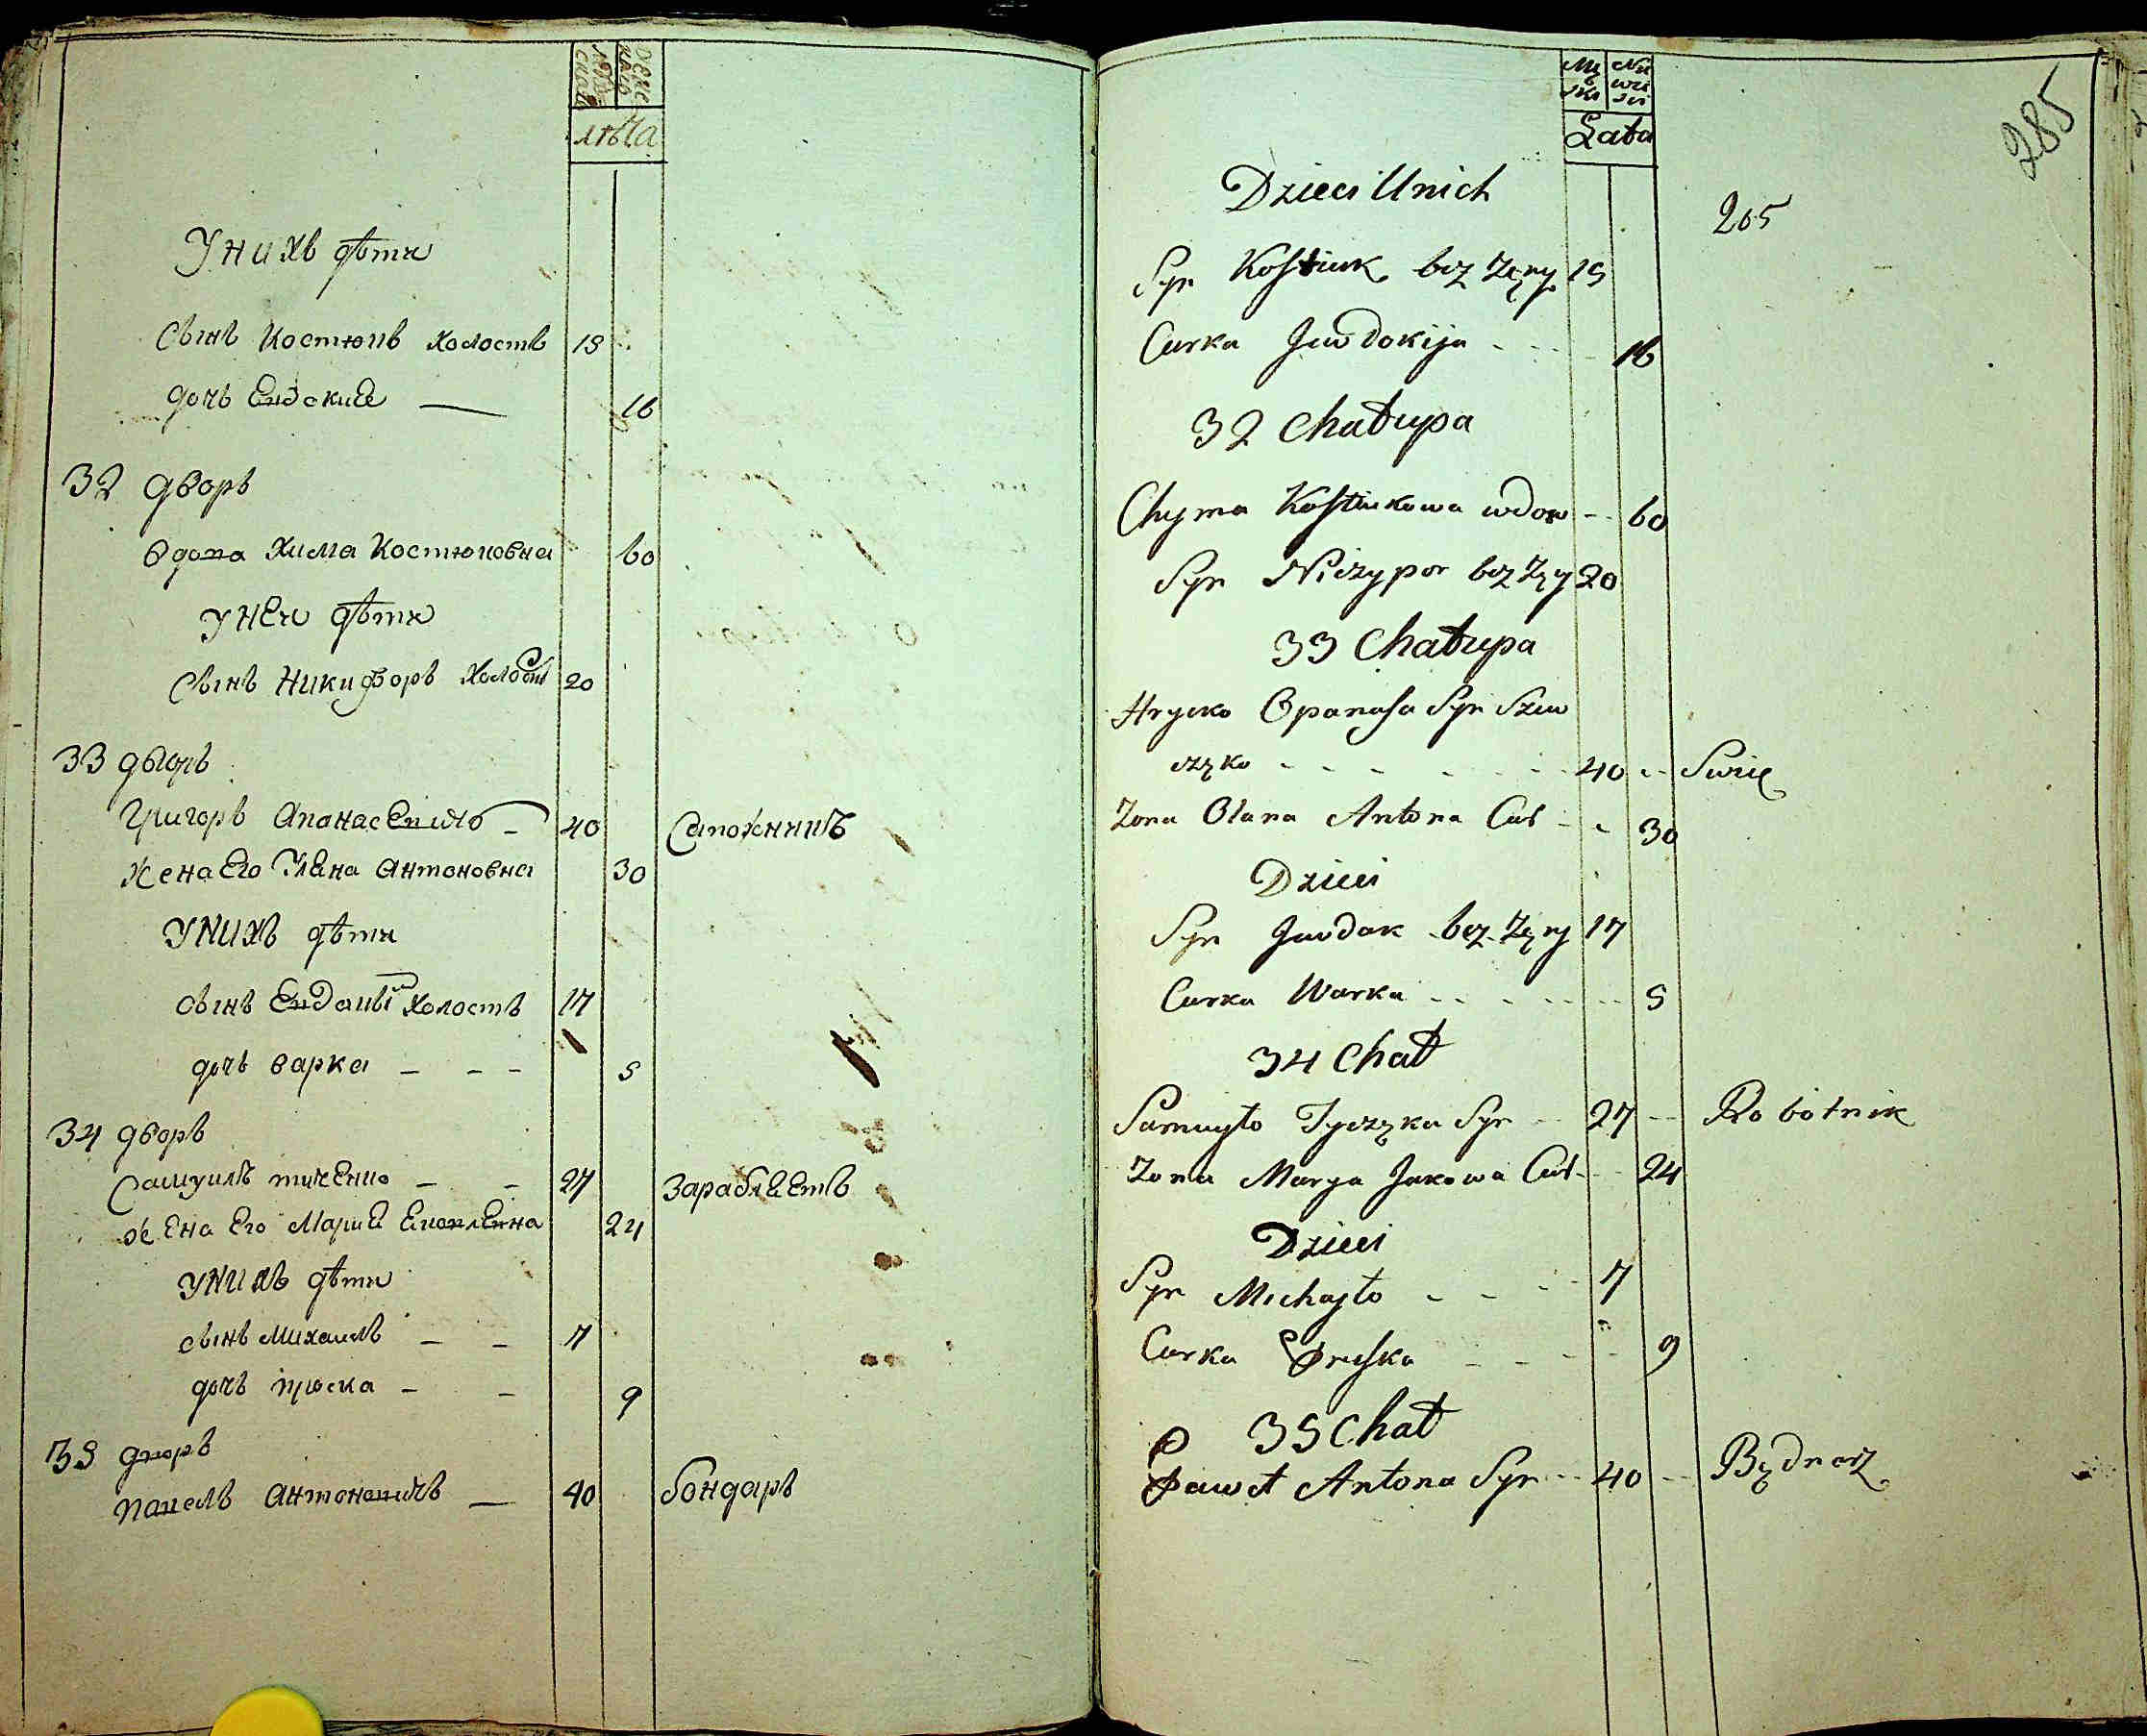 лѣта
У нихъ дѣти
сынъ Костюкъ холостъ 15
дочь Евдокия — 16
32 дворъ
вдова Хима Костюковна 60
У неи дѣти
сынъ Никифоръ холостъ 20
33 дворъ
Григоръ Апанасенко — 40 Сапожникъ
жена Его Уляна Антоновна 30
У нихъ дѣти
сынъ Евдокый холостъ 17
дочь варка — — — 5
34 дворъ
Самуилъ тиченко — — 27 зарабляетъ
жена Его Мария 24
У нихъ дѣти
сынъ Михаилъ — — 7
дочь проска — — 9
35 дворъ
Павелъ Антоновичъ — 40 бондаръ
285
Lata
Dzieci U nich
205
Syn Kostiuk bez Zęny 15
Curka Jawdokija - - - - 16
32 Chałupa
Chyma Kostiukowa wdow - - 60
Syn Niczypor bez Zęy 20
33 Chałupa
Hrycko Opanasa Syn Szew
czyko - - - - - - 40 - - Swiec
Zona Olana Antona Cur - - 30
Dzieci
Syn Jawdok bez Zęny 17
Curka Warka - - - - - 5
34 Chał
Samuyło Tyczęka Syn - - 27 - - Robotnik
Zona Marya Jakowa Cur - - 24
Dzieci
Syn Michayło - - - - 7
Curka Pruska - - - - 9
35 Chał
Paweł Antona Syn - - 40 - - Będnarz